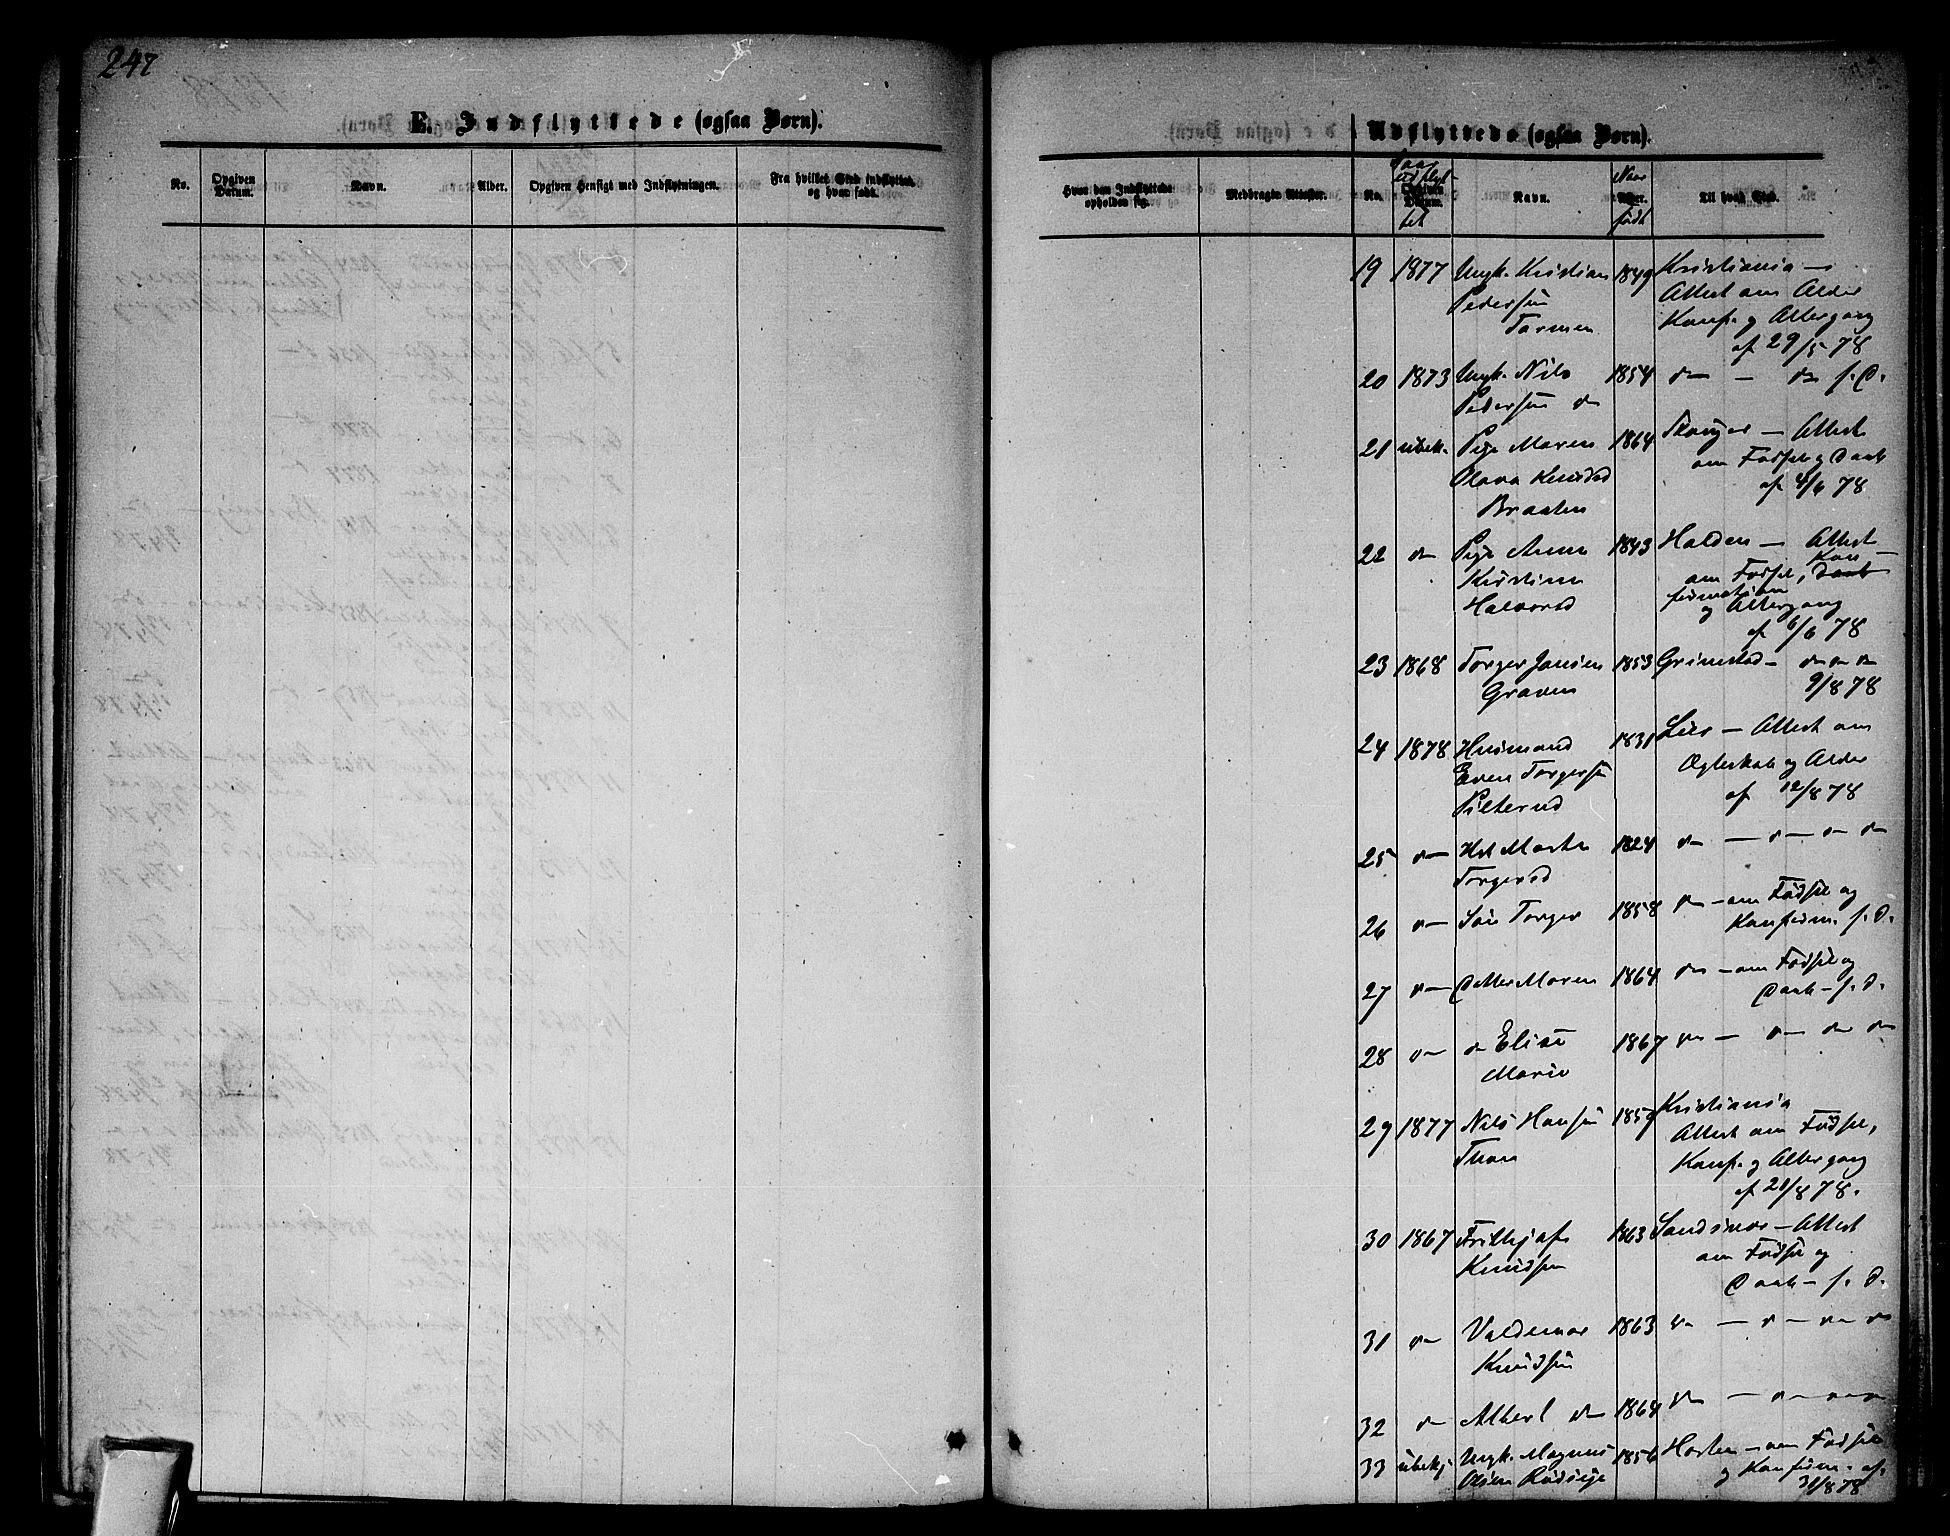 247
E. Indflyttede (ogsaa Børn).
No.
Opgiven Datum.
Navn.
Alder.
Opgiven Hensigt med Indflytningen.
Fra hvilket Sted indflyttet, og hvor født.
Udflyttede (ogsaa Børn).
Hvor den Indflyttede opholder sig.
Medbragte Attester.
No.
Opgiven Datum.
Navn.
Naar
Alder.
født
Til hvad Sted.
19 1877 Ungk. Kristian 1849 Kristiania –
Pedersen Attest om Alder
Tormen Konf. og Altergang
af 29/5 78
20 1873 Ungk. Nils 1854 do – do s. D.
Pedersen do
21 ubek. Pige Maren 1864 – Attest
Olava Knudsd om Fødsel og Daab
Braaten af 4/6 78
22 do Pige Anne 1843 Halden – Attest
Kristine om Fødsel, Daab Kon-
Halvorsd firmation
og Altergang
af 6/6 78
23 1868 Torger Jansen 1853 Grimstad – do do do
Graven 9/8 78
24 1878 Husmand 1831 Lier – Attest om
Even Torgersen Ægteskab og Alder
Pilterud af 12/8 78
25 do Hst Marthe 1824 do – do – do do
Torgersd
26 do Søn Torger 1858 do – om Fødsel og
Konfirm. s. D.
27 do Datter Maren 1864 do – om Fødsel og
Daab – s. D.
28 do do Elise 1867 do – do do do
Marie
29 1877 Nils Hansen 1859 Kristiania
Thon Attest om Fødsel,
Konf. og Altergang
af 21/8 78.
30 1867 Frithjof 1863 Sandsvær – Attest
Knudsen om Fødsel og
Daab – s. D.
31 do Valdemar 1863 do – do – do do
Knudsen
32 do Albert do 1864 do – do do do
33 ubekj. Ungk. Magnus 1856 Horten – om Fødsel
Olsen og Konfirm. af
31/8 78